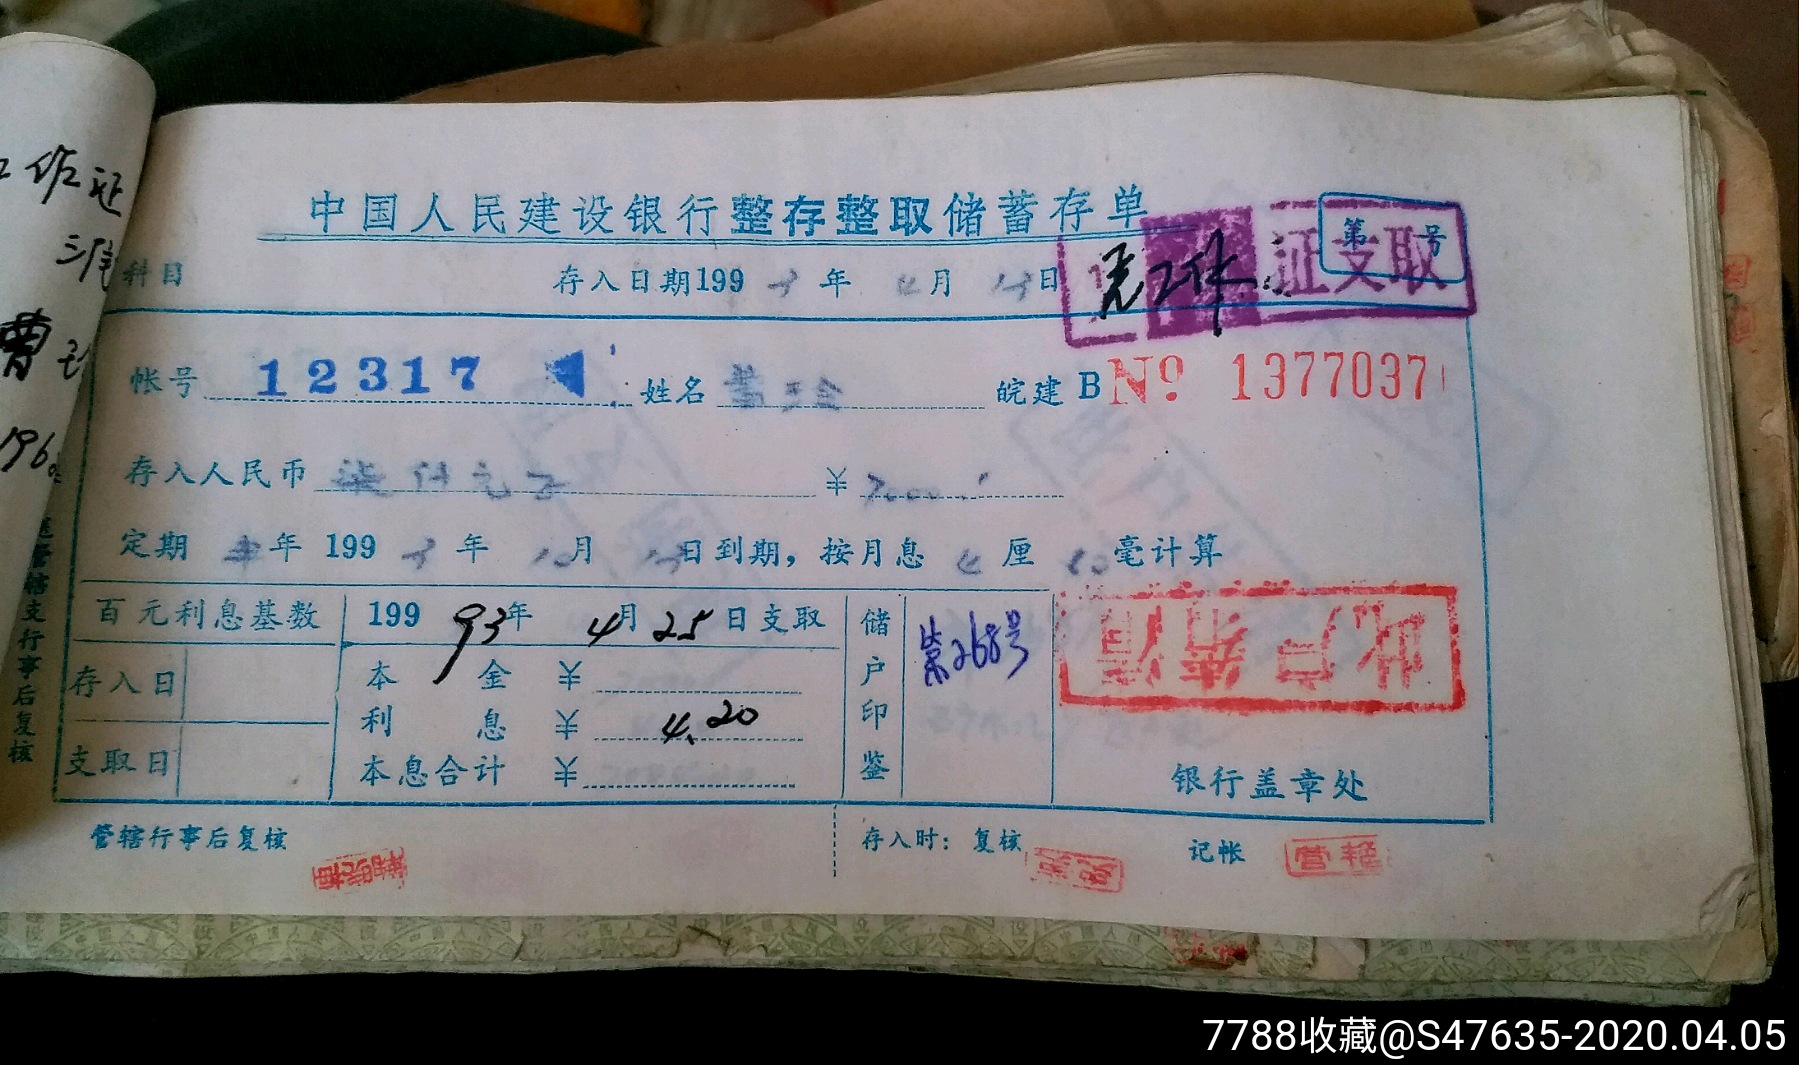 工作证
曹
196
中国人民建设银行整存整取储蓄存单
第 号
科目 存入日期199 3 年 4 月 13 日
凭工作证支取
帐号 12317 姓名 皖建 B No 1377037
存入人民币 柒仟元正 ¥ 7000
定期 半 年 199 3 年 10 月 13 日到期，按月息 4 厘 毫计算
百元利息基数 199 93 年 4 月 25 日支取
存入日
支取日
本 金 ¥
利 息 ¥ 4.20
本息合计 ¥
储户印鉴
第268号
此户结清
银行盖章处
管辖支行事后复核
管辖行事后复核 存入时： 复核 记帐
7788收藏@S47635-2020.04.05